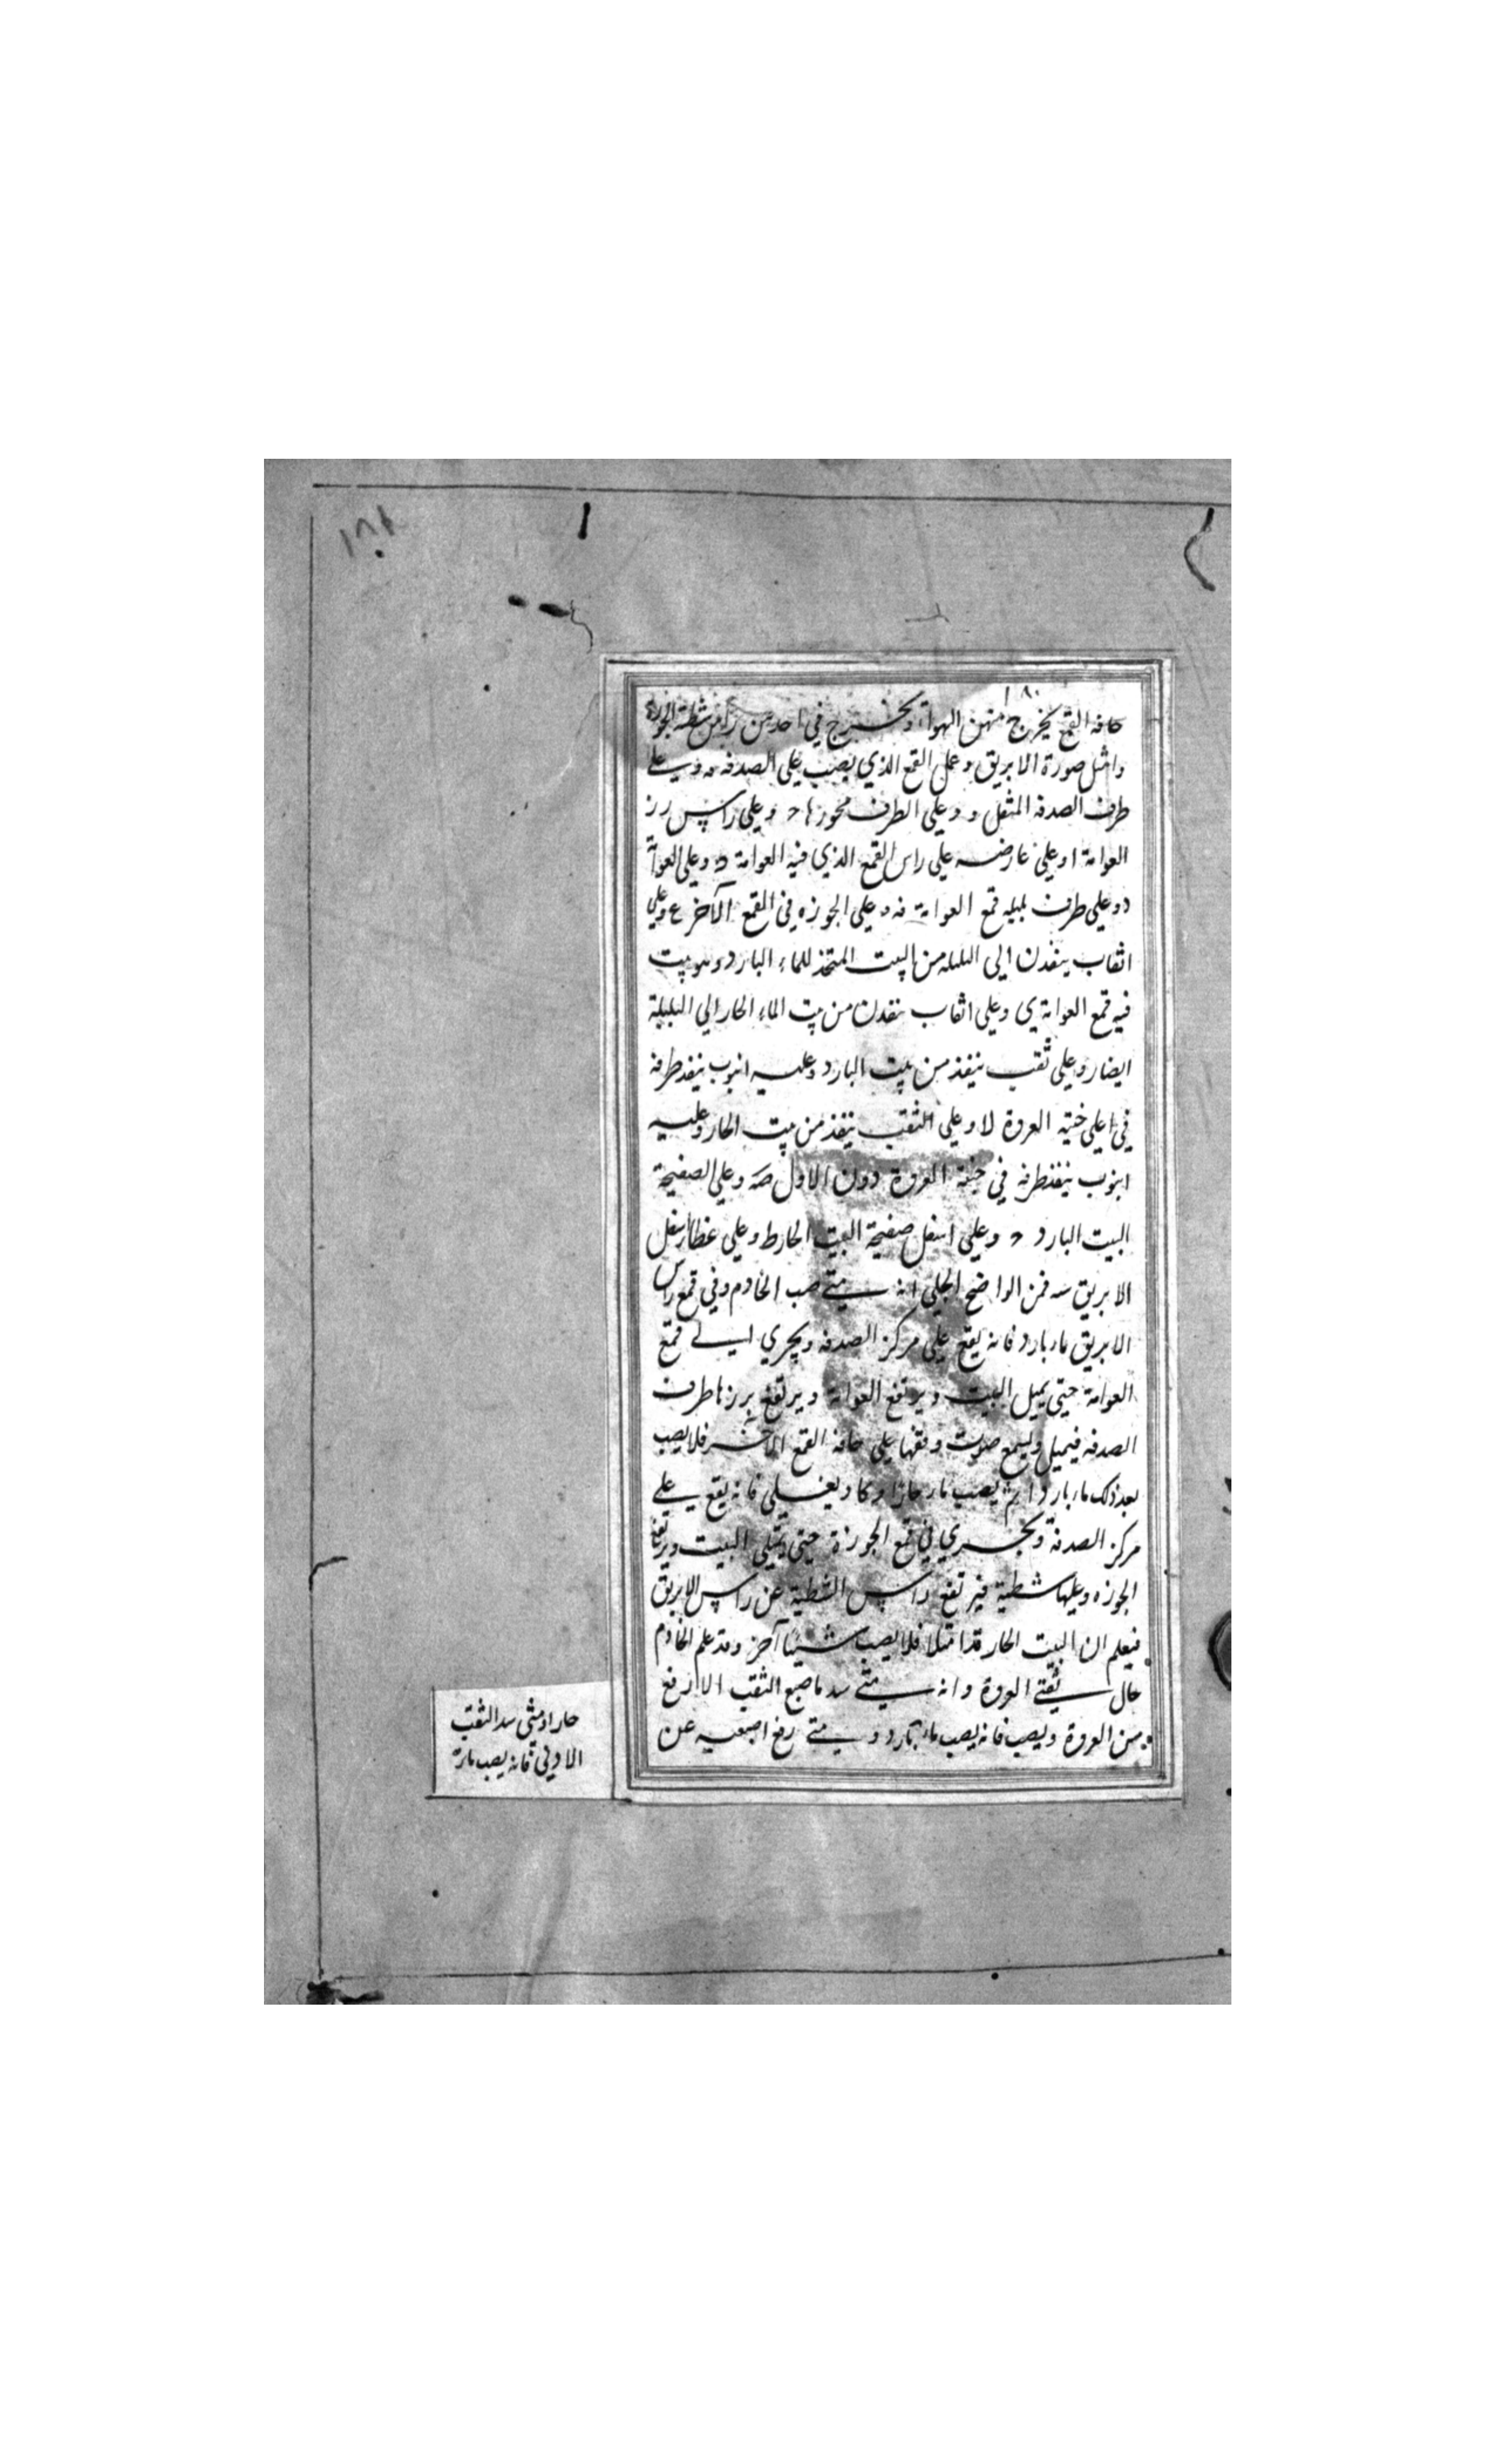 ١٨١
١٨٠
حافه القمع يخرج منهن الهواء ويخرج في احدهن راس شظية الجوزة
وامثل صورة الابريق وعمل القمع الذي يصب على الصدفه وه وعلى
طرف الصدفه المثقل و وعلى الطرف محورها ح وعلى راس رز
العوامة ا وعلى عارضه على راس القمع الذي فيه العوامة وعلى العوامة
د وعلى طرف بلبله قمع العوامة ف وعلى الجوزه في القمع الآخر ع وعلى
اثقاب ينفذن الى البلبله من البيت المتخذ للماء البارد وهو بيت
فيه قمع العوامة ى وعلى اثقاب ينفذن من بيت الماء الحار الى البلبلة
ايضا ر وعلى ثقب ينفذ من بيت البارد وعليه انبوب ينفذ طرفه
في اعلى حنية العروة لا وعلى الثقب ينفذ من بيت الحار وعليه
انبوب ينفذ طرفه في حنية العروة دون الاول صه وعلى الصفيحة
البيت البارد و وعلى اسفل صفيحة البيت الحار ط وعلى غطا اسفل
الابريق سه فمن الواضح الجلي انه متى صب الخادم وفي قمع راس
الابريق ماء بارد فانه يقع على مركز الصدفه ويجري الى قمع
العوامة حتى يميل البيت ويرتفع العوامة ويرتفع برزها طرف
الصدفه فيميل ويسمع صوت وقعها على حافه القمع الآخر فلا يصب
بعد ذلك ماء باردا ثم يصب ماء حارا وكاد يغلي فانه يقع على
مركز الصدفة ويجري في قمع الجوزة حتى يمتلي البيت ويرتفع
الجوزه وعليها شظية فيرتفع راس الشظية عن راس الابريق
فيعلم ان البيت الحار قد امتلا فلا يصب شيئا آخر وقد علم الخادم
حال ثقبتي العروة وانه متى سد باصبع الثقب الارفع
من العروة ويصب فانه يصب ماء بارد و متى رفع اصبعيه عن
حار او متى سد الثقب
الادنى فانه يصب ماء